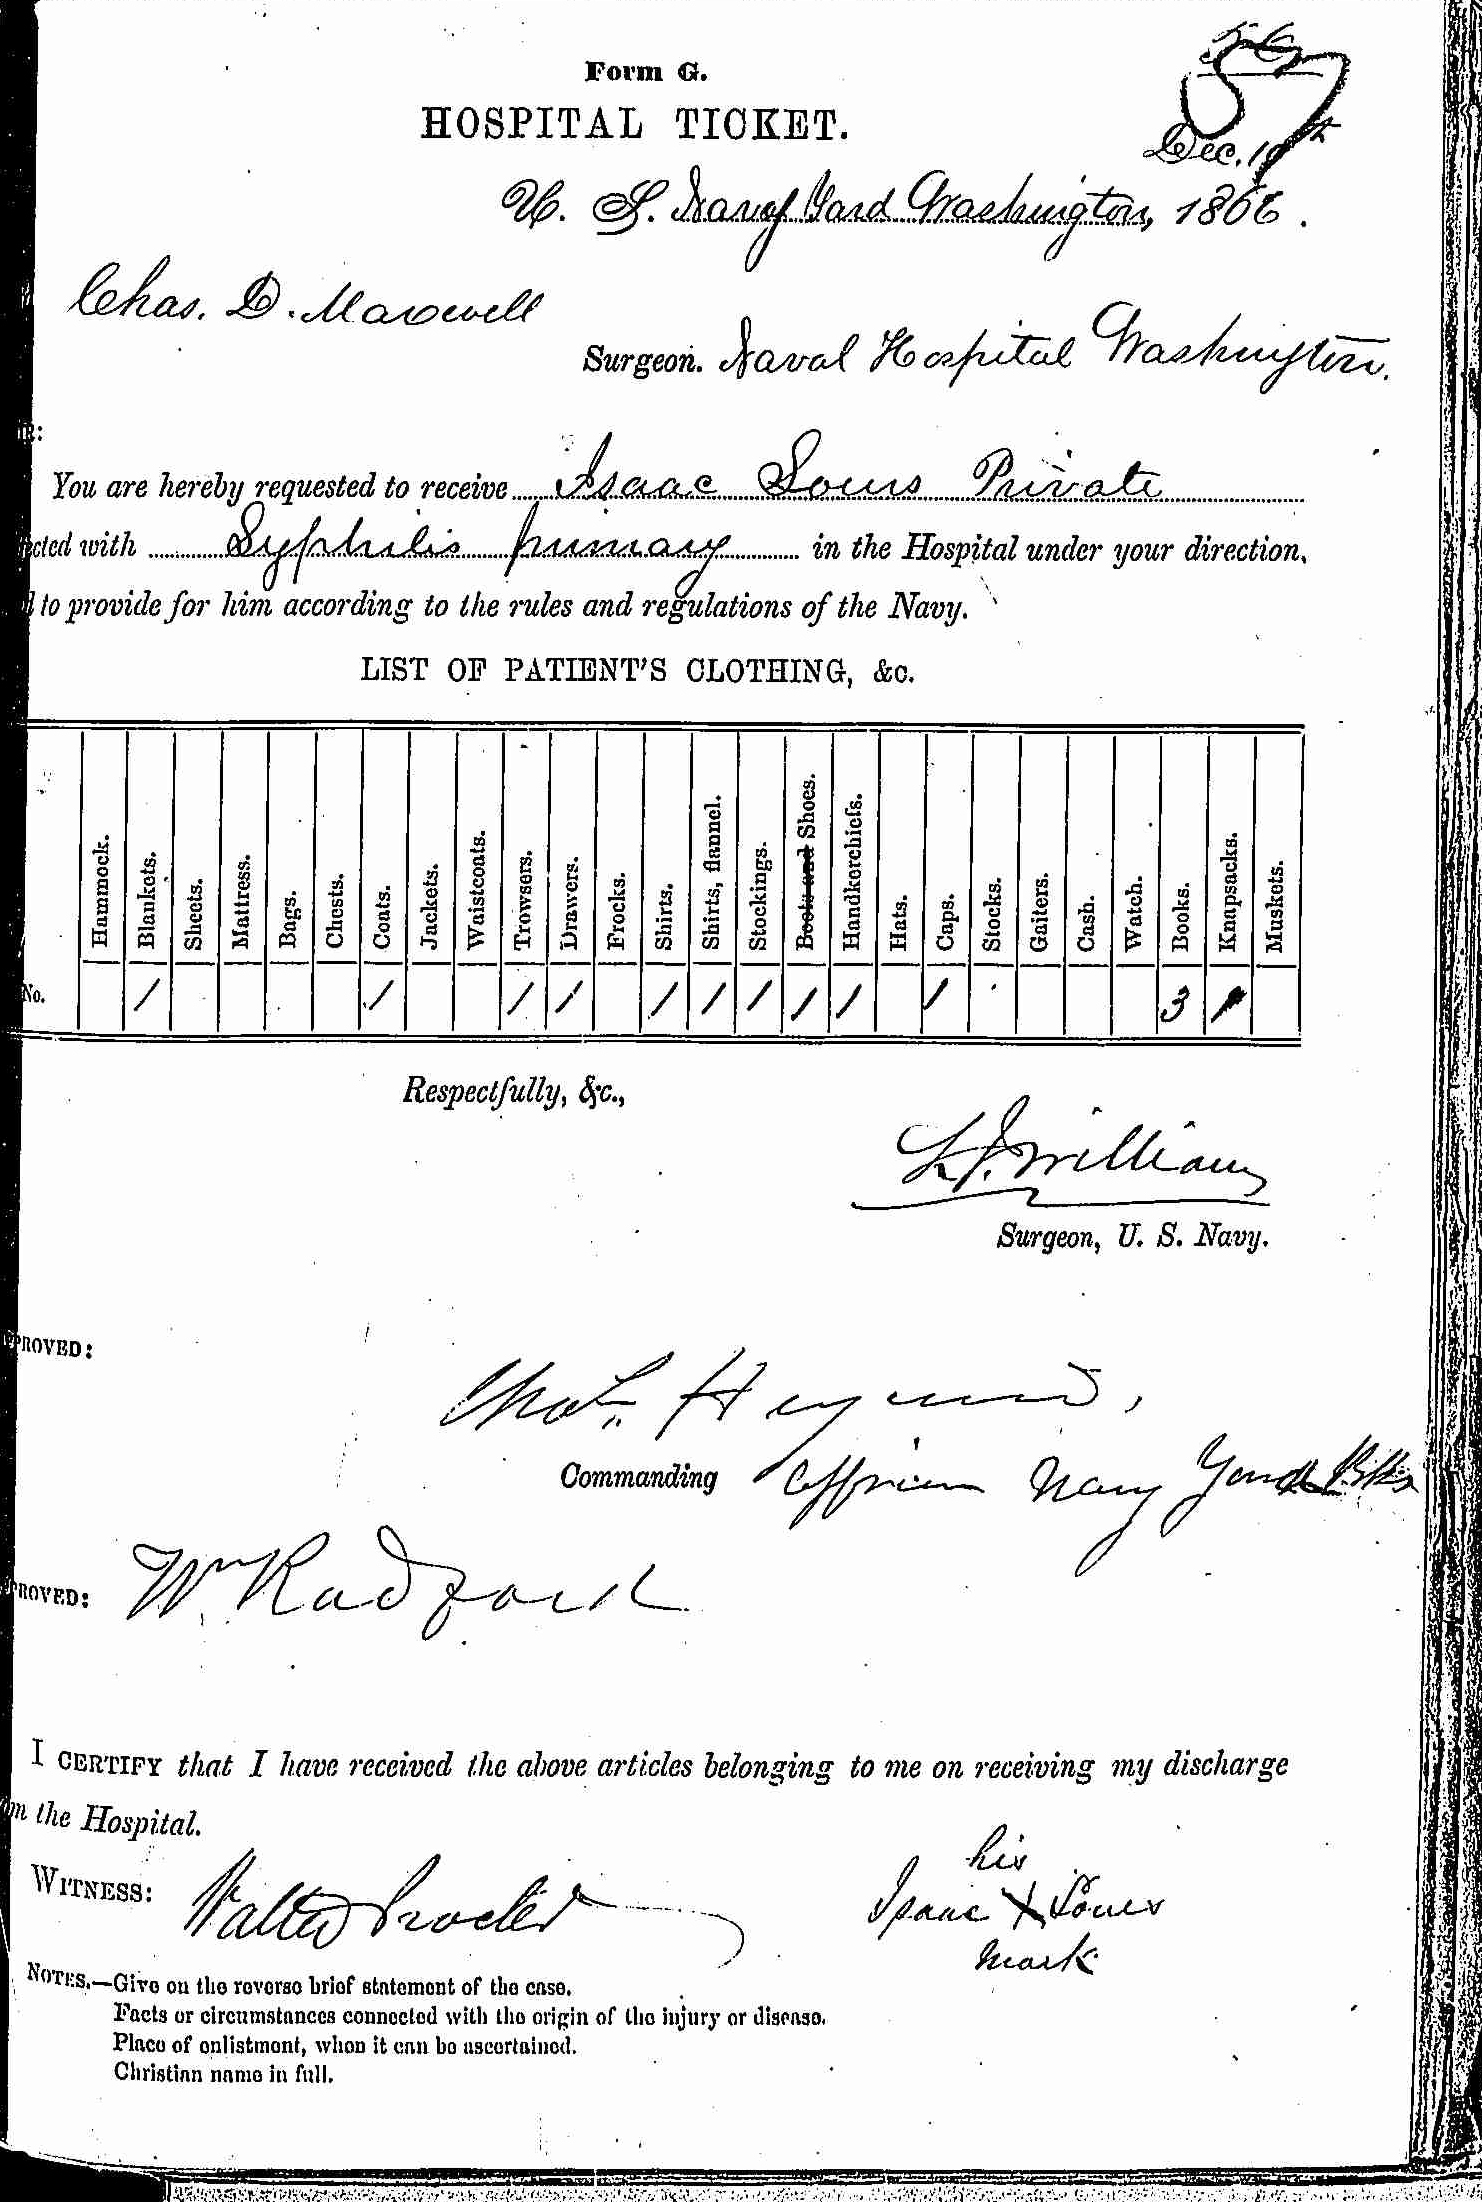 57
Form G.
HOSPITAL TICKET.
Dec. 19th
U. S. Navy Yard Washington, 1866.
Chas. D. Maxwell
Surgeon. Naval Hospital Washington.
You are hereby requested to receive Isaac Sours Private
cted with Syphilis primary in the Hospital under your direction,
to provide for him according to the rules and regulations of the Navy.
LIST OF PATIENT'S CLOTHING, &c.
Hammock. Blankets. Sheets. Mattress. Bags. Chests. Coats. Jackets. Waistcoats. Trowsers. Drawers. Frocks. Shirts. Shirts, flannel. Stockings. Boots and Shoes. Handkerchiefs. Hats. Caps. Stocks. Gaiters. Cash. Watch. Books. Knapsacks. Muskets.
No. 1 1 1 1 1 1 1 1 1 1 3 1
Respectfully, &c.,
Williams
Surgeon, U. S. Navy.
PROVED:
Commanding Navy Yard
PROVED: Wm Radford
I CERTIFY that I have received the above articles belonging to me on receiving my discharge
m the Hospital.
his
WITNESS: Walter Procter Isaac X Sours
mark
NOTES.—Give on the reverse brief statement of the case.
Facts or circumstances connected with the origin of the injury or disease.
Place of enlistment, when it can be ascertained.
Christian name in full.